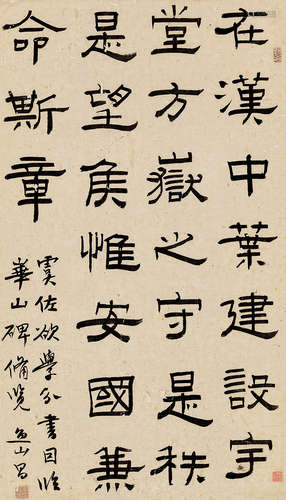 在漢中葉建設宇
堂方嶽之守是秩
是望侯惟安國兼
命斯章
虞佐欲學分書因臨
華山碑備覽